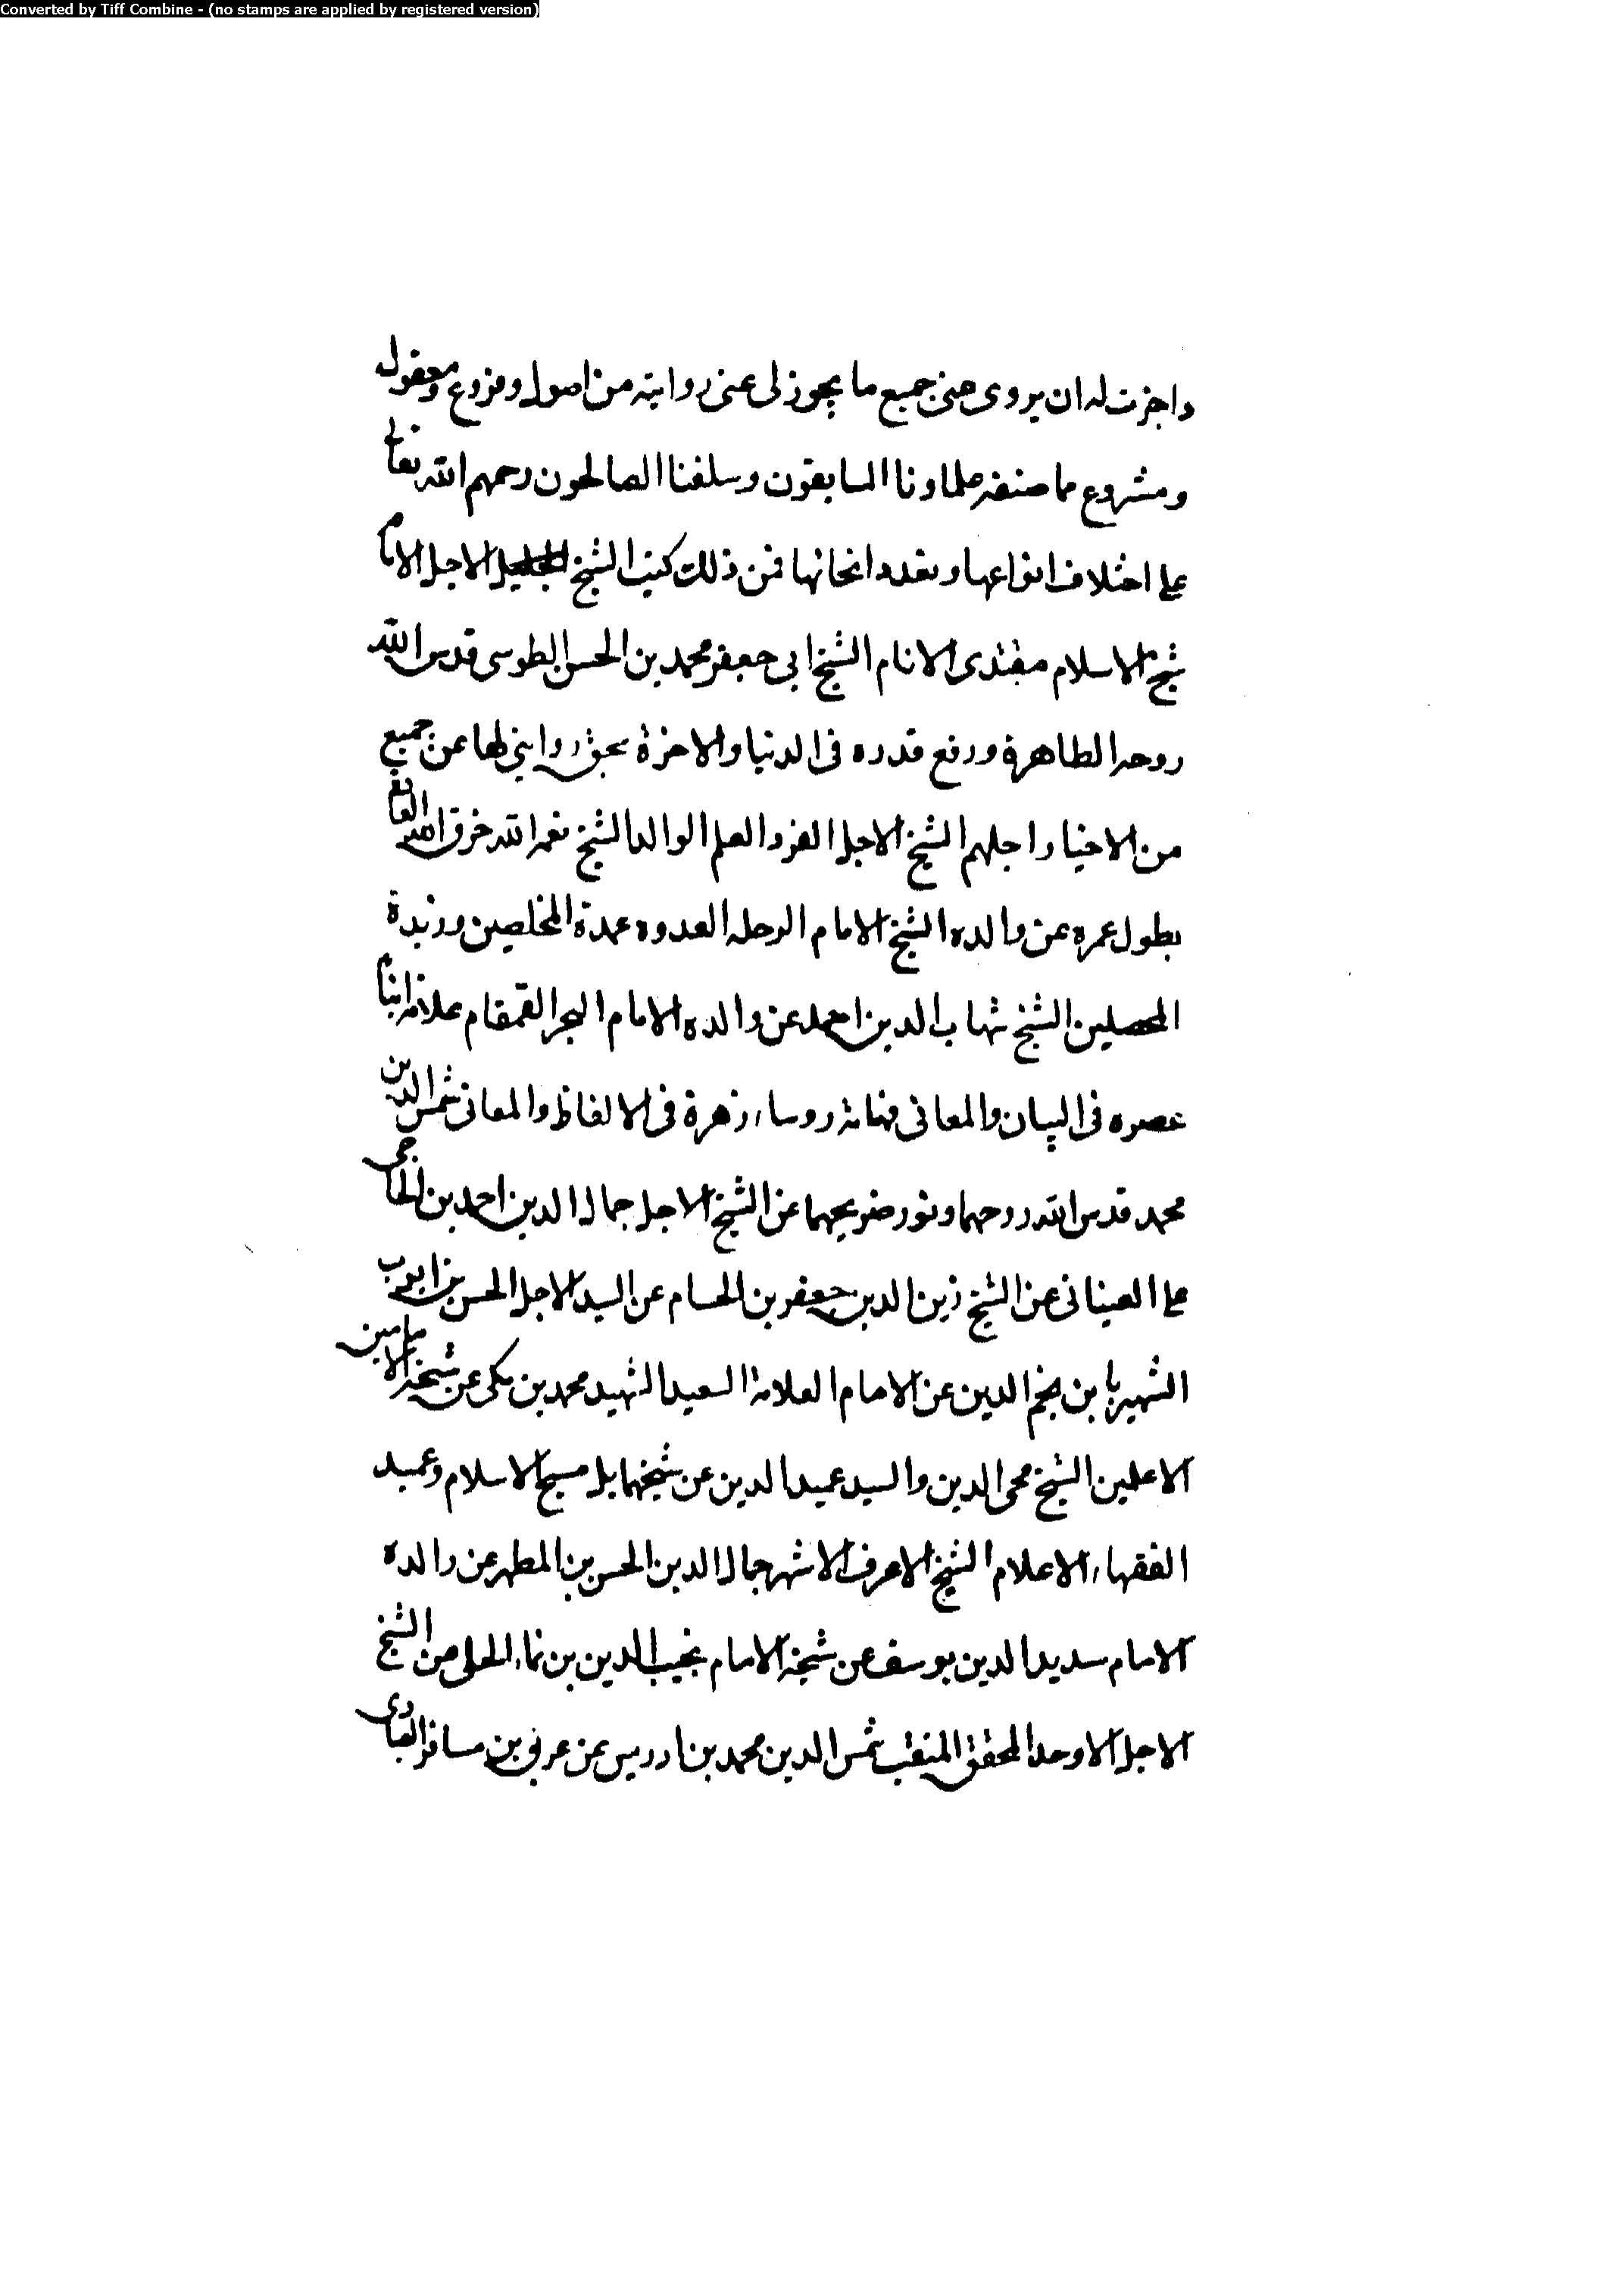 Converted by Tiff Combine - (no stamps are applied by registered version)
واجزت له ان يروى عنى جميع ما يجوز لى عنى روايته من اصول وفروع ومعقول
ومشروع مما صنفه علماونا السابقون وسلفنا الصالحون رحمهم الله تعالى
على اختلاف انواعها وتعدد انحائها فمن ذلك كتب الشيخ الاجل الامام
شيخ الاسلام مقتدى الانام الشيخ ابى جعفر محمد بن الحسن الطوسى قدس الله
روحه الطاهرة ورفع قدره فى الدنيا والاخرة بحق روايتى لها عن جميع
من الاخيار اجلهم الشيخ الاجل الفرد العلم الوالد الشيخ نعمة الله خرق الله العادة
بطول عمره عن والده الشيخ الامام الرحله القدوه عمدة المخلصين وزبدة
المحصلين الشيخ شهاب الدين احمد عن والده الامام البحر القمقام علامة ابناء
عصره فى البيان والمعانى فهامة روساء زهرة فى الالفاظ والمعانى شمس الدين
محمد قدس الله روحهما ونور ضريحهما عن الشيخ الاجل جمال الدين احمد بن الحاجى
على العينانى عن الشيخ زين الدين جعفر بن الحسام عن السيد الاجل الحسن بن ايوب
الشهير بابن نجم الدين عن الامام العلامة السعيد الشهيد محمد بن مكى عن شيخه الامامين
الاعلمين الشيخ محى الدين والسيد عميد الدين عن شيخهما بل شيخ الاسلام وعميد
الفقهاء الاعلام الشيخ الاعرف الاشهر جمال الدين الحسن بن المطهر عن والده
الامام سديد الدين يوسف عن شيخه الامام نجيب الدين بن نماء الحلى عن الشيخ
الاجل الاوحد المحقق المنقب شمس الدين محمد بن ادريس عن عربى بن مسافر العبادى